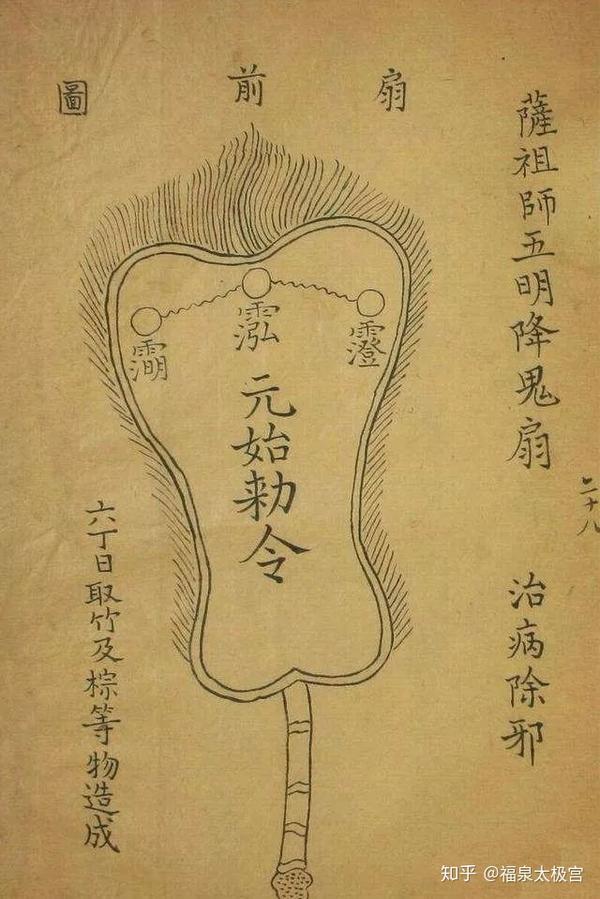 薩祖師五明降鬼扇
治病除邪
二十八
扇前圖
元始勅令
六丁日取竹及棕等物造成
知乎 @福泉太极宫